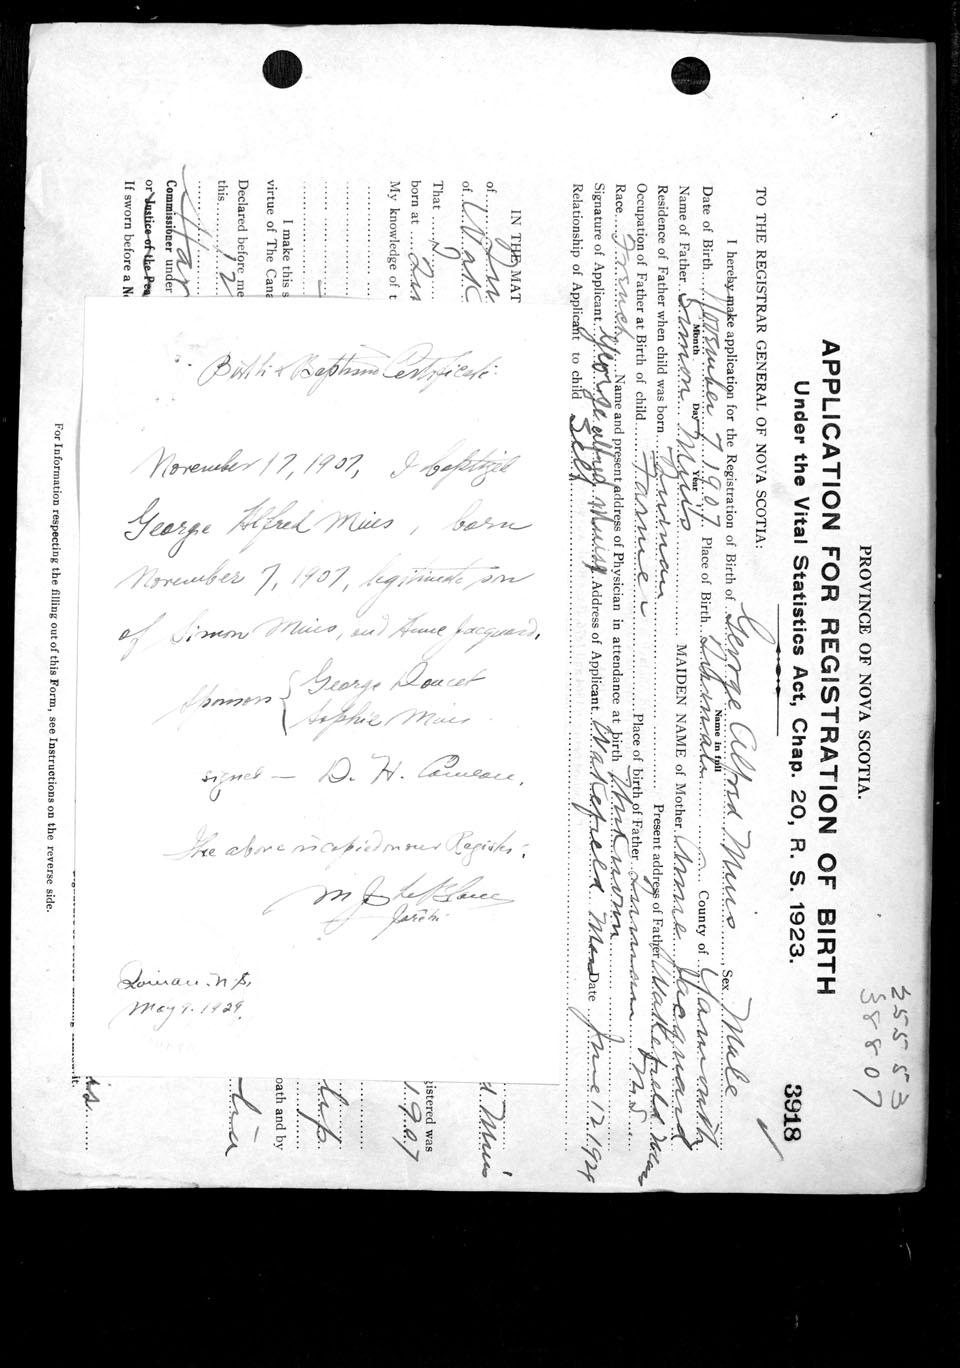 25553
58807
3918
PROVINCE OF NOVA SCOTIA.
APPLICATION FOR REGISTRATION OF BIRTH
Under the Vital Statistics Act, Chap. 20, R. S. 1923.
TO THE REGISTRAR GENERAL OF NOVA SCOTIA:
I hereby make application for the Registration of Birth of George Alfred Muis, Sex Male
Name in full
Date of Birth November 7 1907 Place of Birth County of Yarmouth
Month Day Year
Name of Father Simon Muis MAIDEN NAME of Mother Anne Jacquard
Residence of Father when child was born Present address of Father Wakefield Mass
Occupation of Father at Birth of child Farmer Place of birth of Father N.S.
Race French Name and present address of Physician in attendance at birth Unknown
Signature of Applicant George Alfred Muis Address of Applicant Wakefield Mass Date June 12 1929
Relationship of Applicant to child Self
IN THE MAT
of
of Wak
That I
born at
My knowledge of t
I make this s
virtue of The Cana
Declared before me
this 12
Har
Commissioner under
or Justice of the Pea
If sworn before a No
d Muis
gistered was
1907
oath and by
it.
For Information respecting the filling out of this Form, see Instructions on the reverse side.
Birth & Baptism Certificate
November 17, 1907, I baptized
George Alfred Mius, born
November 7, 1907, legitimate son
of Simon Mius, and Anne Jacquard.
Sponsors { George Doucet
Sophie Mius
signed — D. H. Comeau.
The above is copied on our Register.
M J LeBlanc
May 9. 1929.